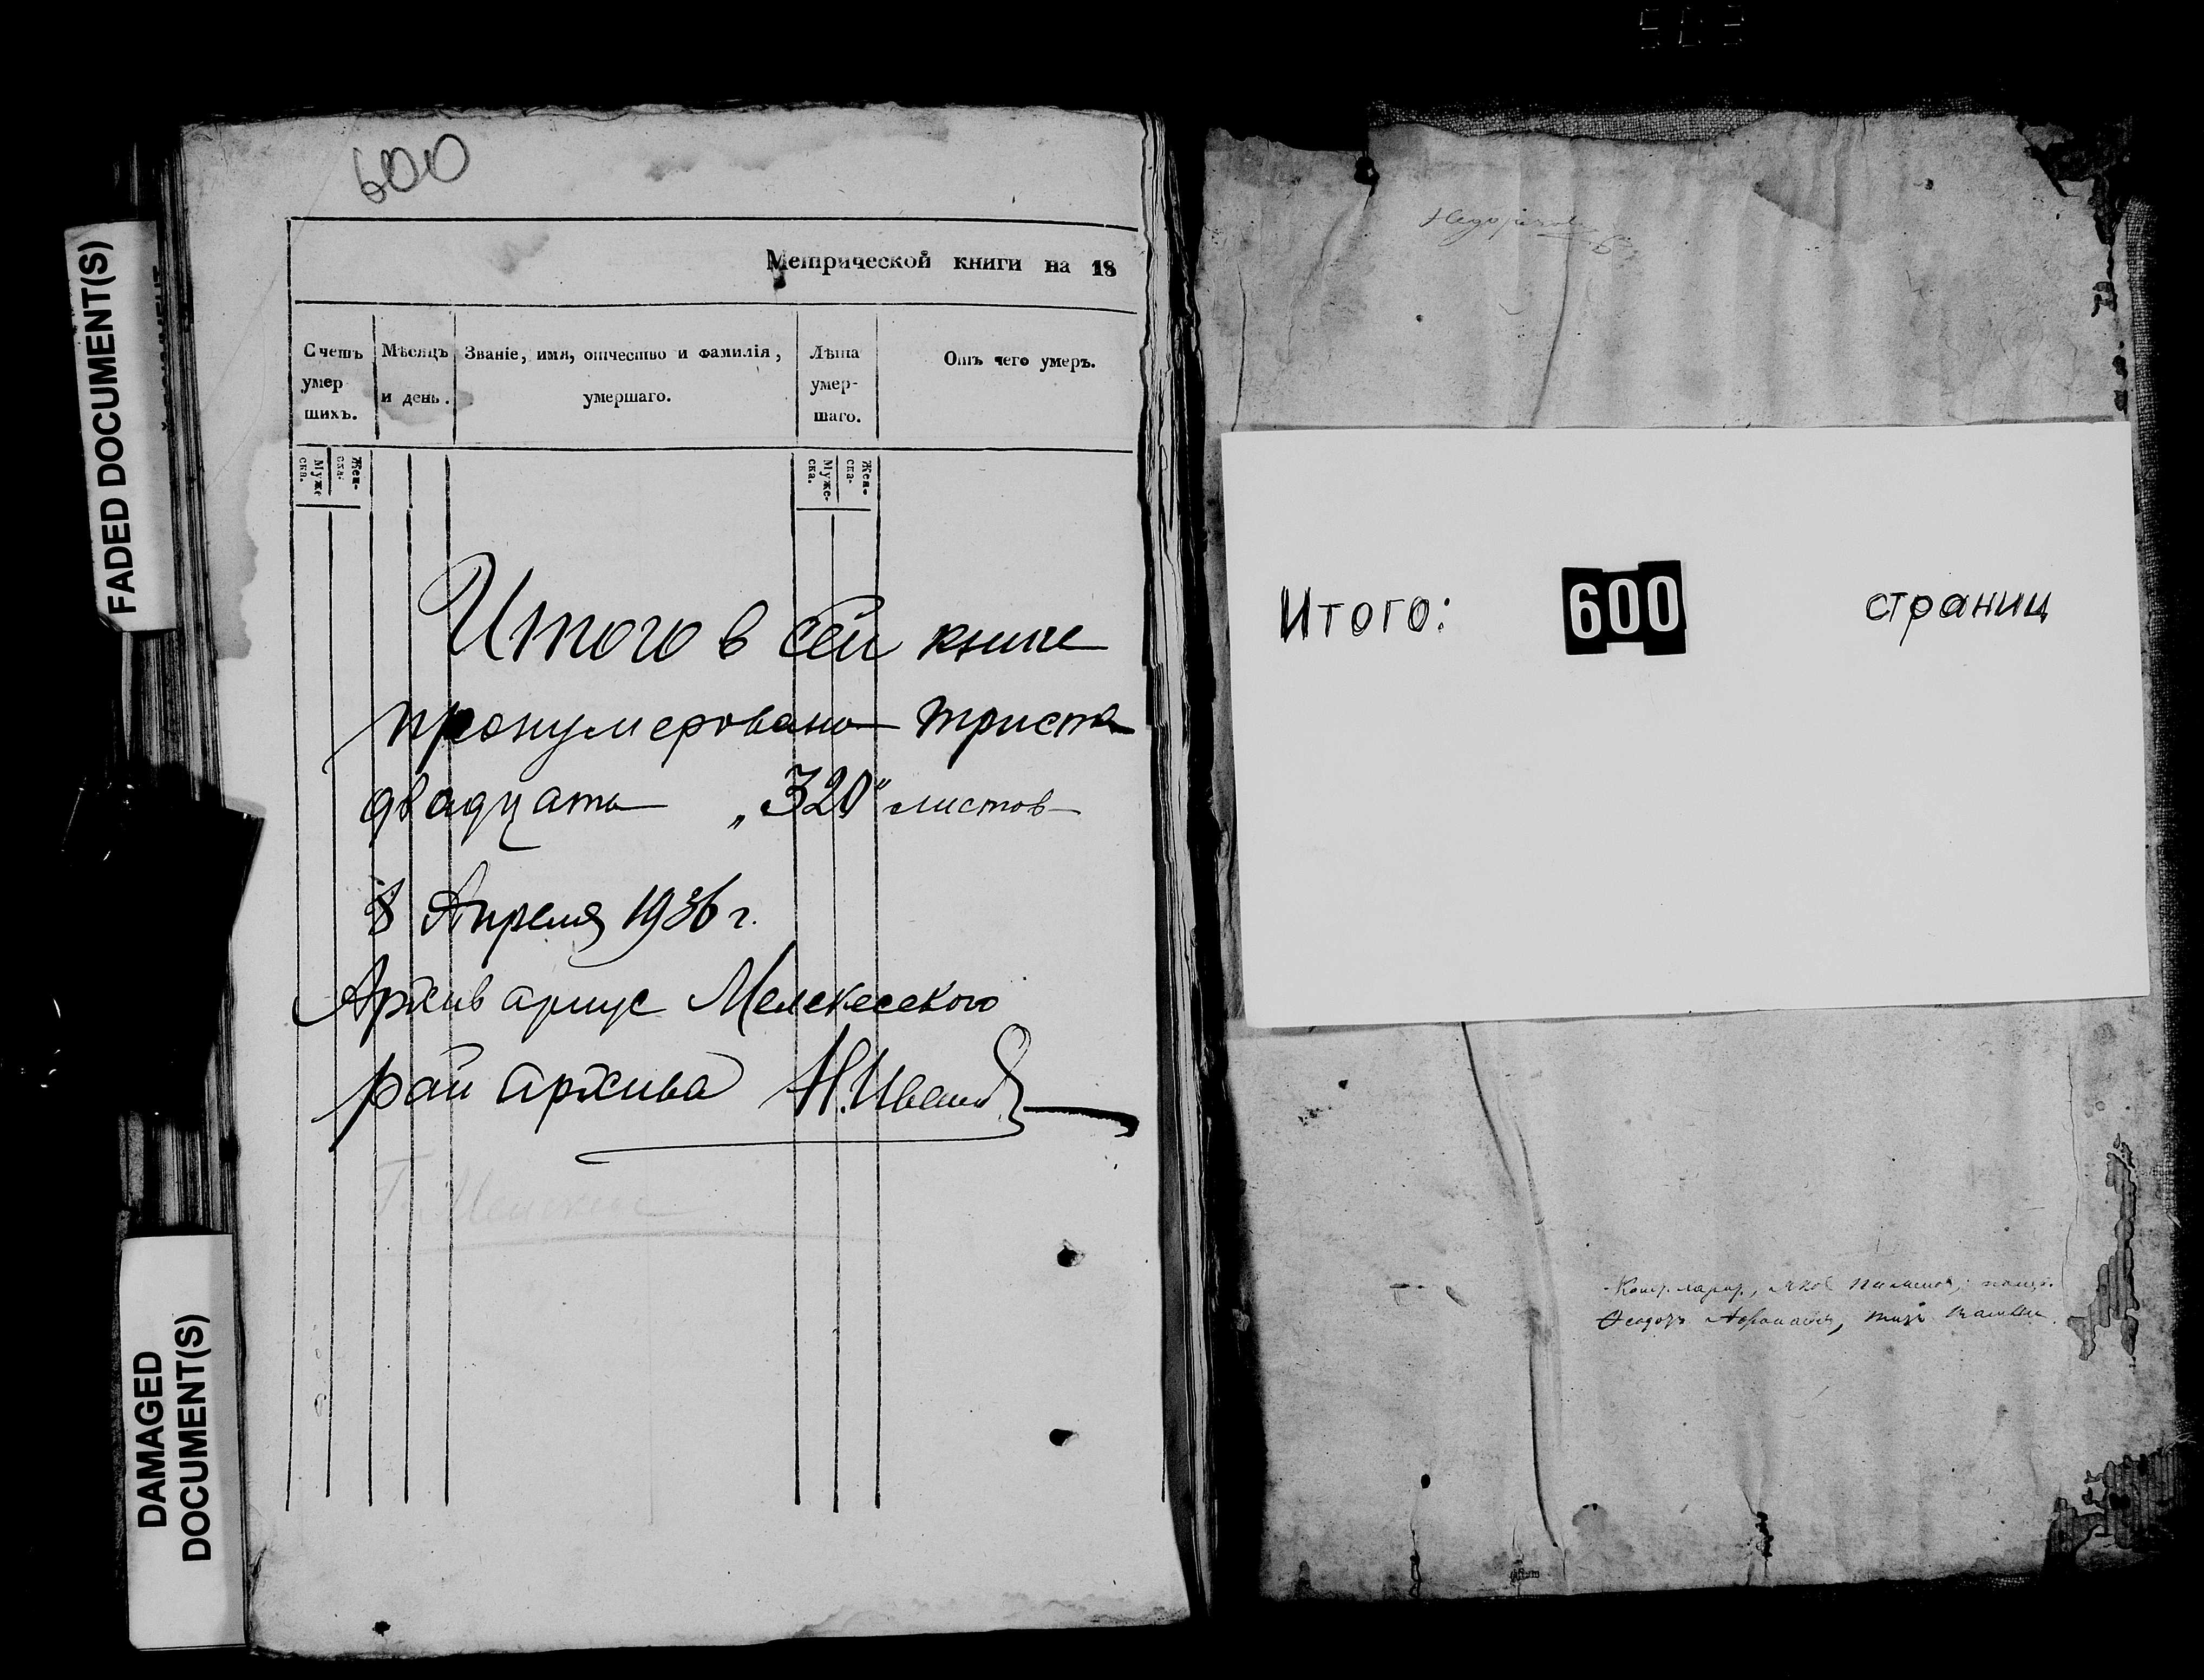 600
Метрической книги на 18
Счетъ умерших. Мѣсяцъ и день. Званіе, имя, отчество и фамилія, умершаго. Лѣта умершаго. Отъ чего умеръ.
Муже ска. Жен- ска. Муже- ска. Жен- ска.
Итого в сей книге
пронумеровано триста
двадцать „320“ листов
8 Апреля 1936 г.
Архивариус Мелекесского
рай архива Н.Иванов
FADED DOCUMENT(S)
DAMAGED
DOCUMENT(S)
Итого: 600 страниц